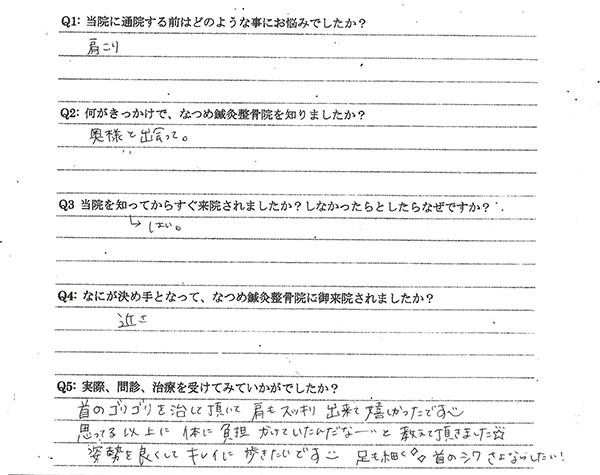 Q1: 当院に通院する前はどのような事にお悩みでしたか？
肩こり
Q2: 何がきっかけで、なつめ鍼灸整骨院を知りましたか？
奥様と出会って。
Q3 当院を知ってからすぐ来院されましたか？しなかったらとしたらなぜですか？
↳ はい。
Q4: なにが決め手となって、なつめ鍼灸整骨院に御来院されましたか？
近さ
Q5: 実際、問診、治療を受けてみていかがでしたか？
首のゴリゴリを治して頂いて 肩もスッキリ 出来て嬉しかったです
思ってる以上に 体に負担 かけていたんだなーと 教えて頂きました☆
姿勢を良くして キレイに 歩きたいです 足も細く 首のシワ さよならしたい！